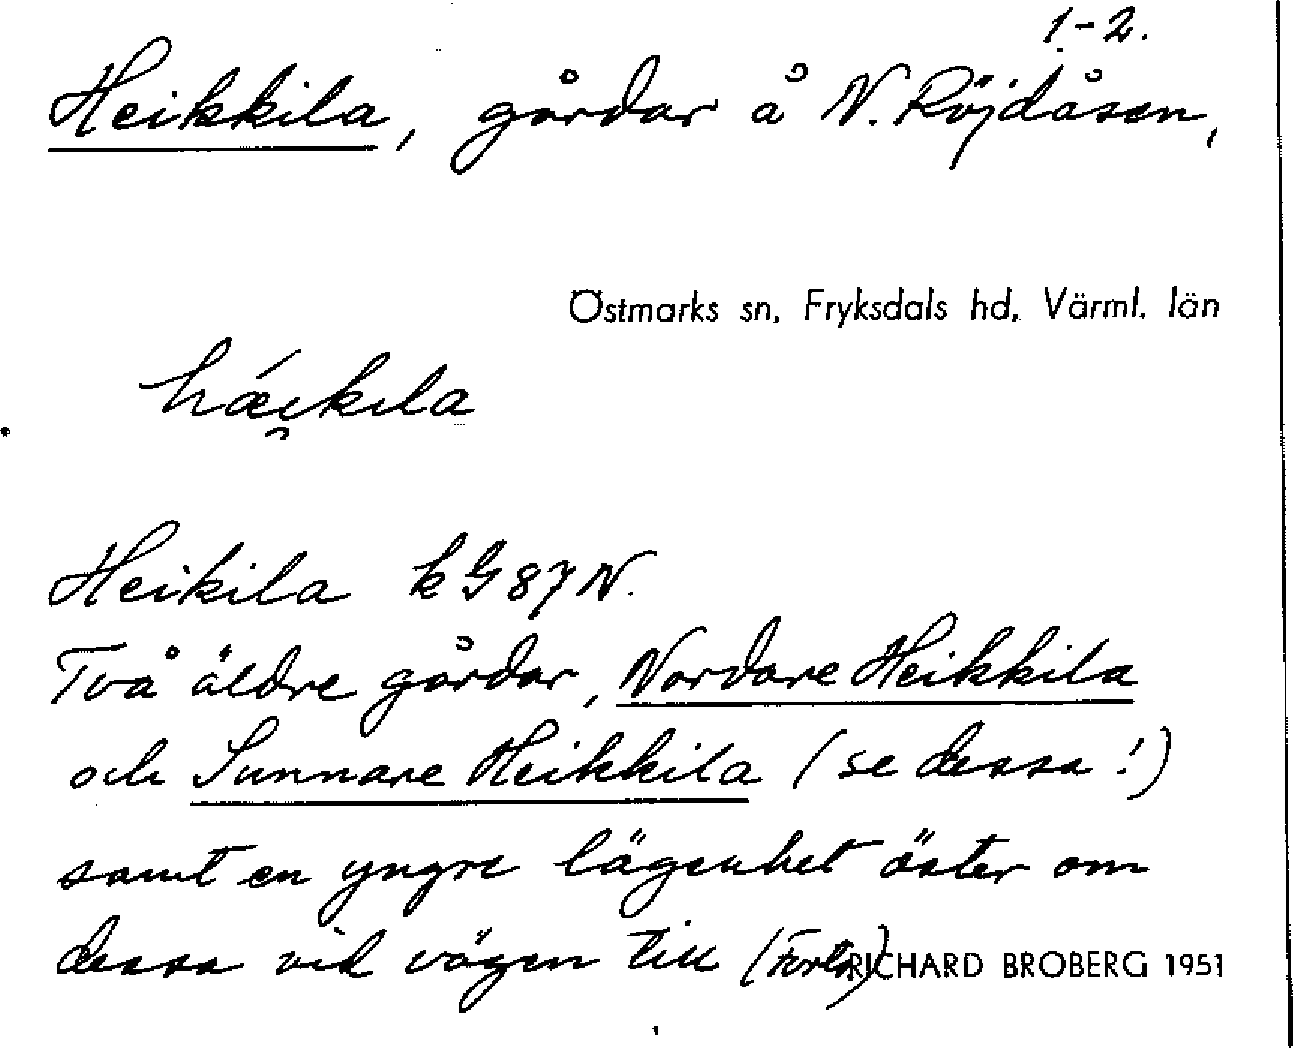 1.-2.
Heikkila, gårdar å N. Röjdåsen,
Östmarks sn, Fryksdals hd, Värml. län
hæi̯kila
Heikila k G 87 N.
Två äldre gårdar, Nordare Heikkila
och Sunnare Heikkila (se dessa!)
samt en yngre lägenhet öster om
dessa vid vägen till (Forts.) RICHARD BROBERG 1951